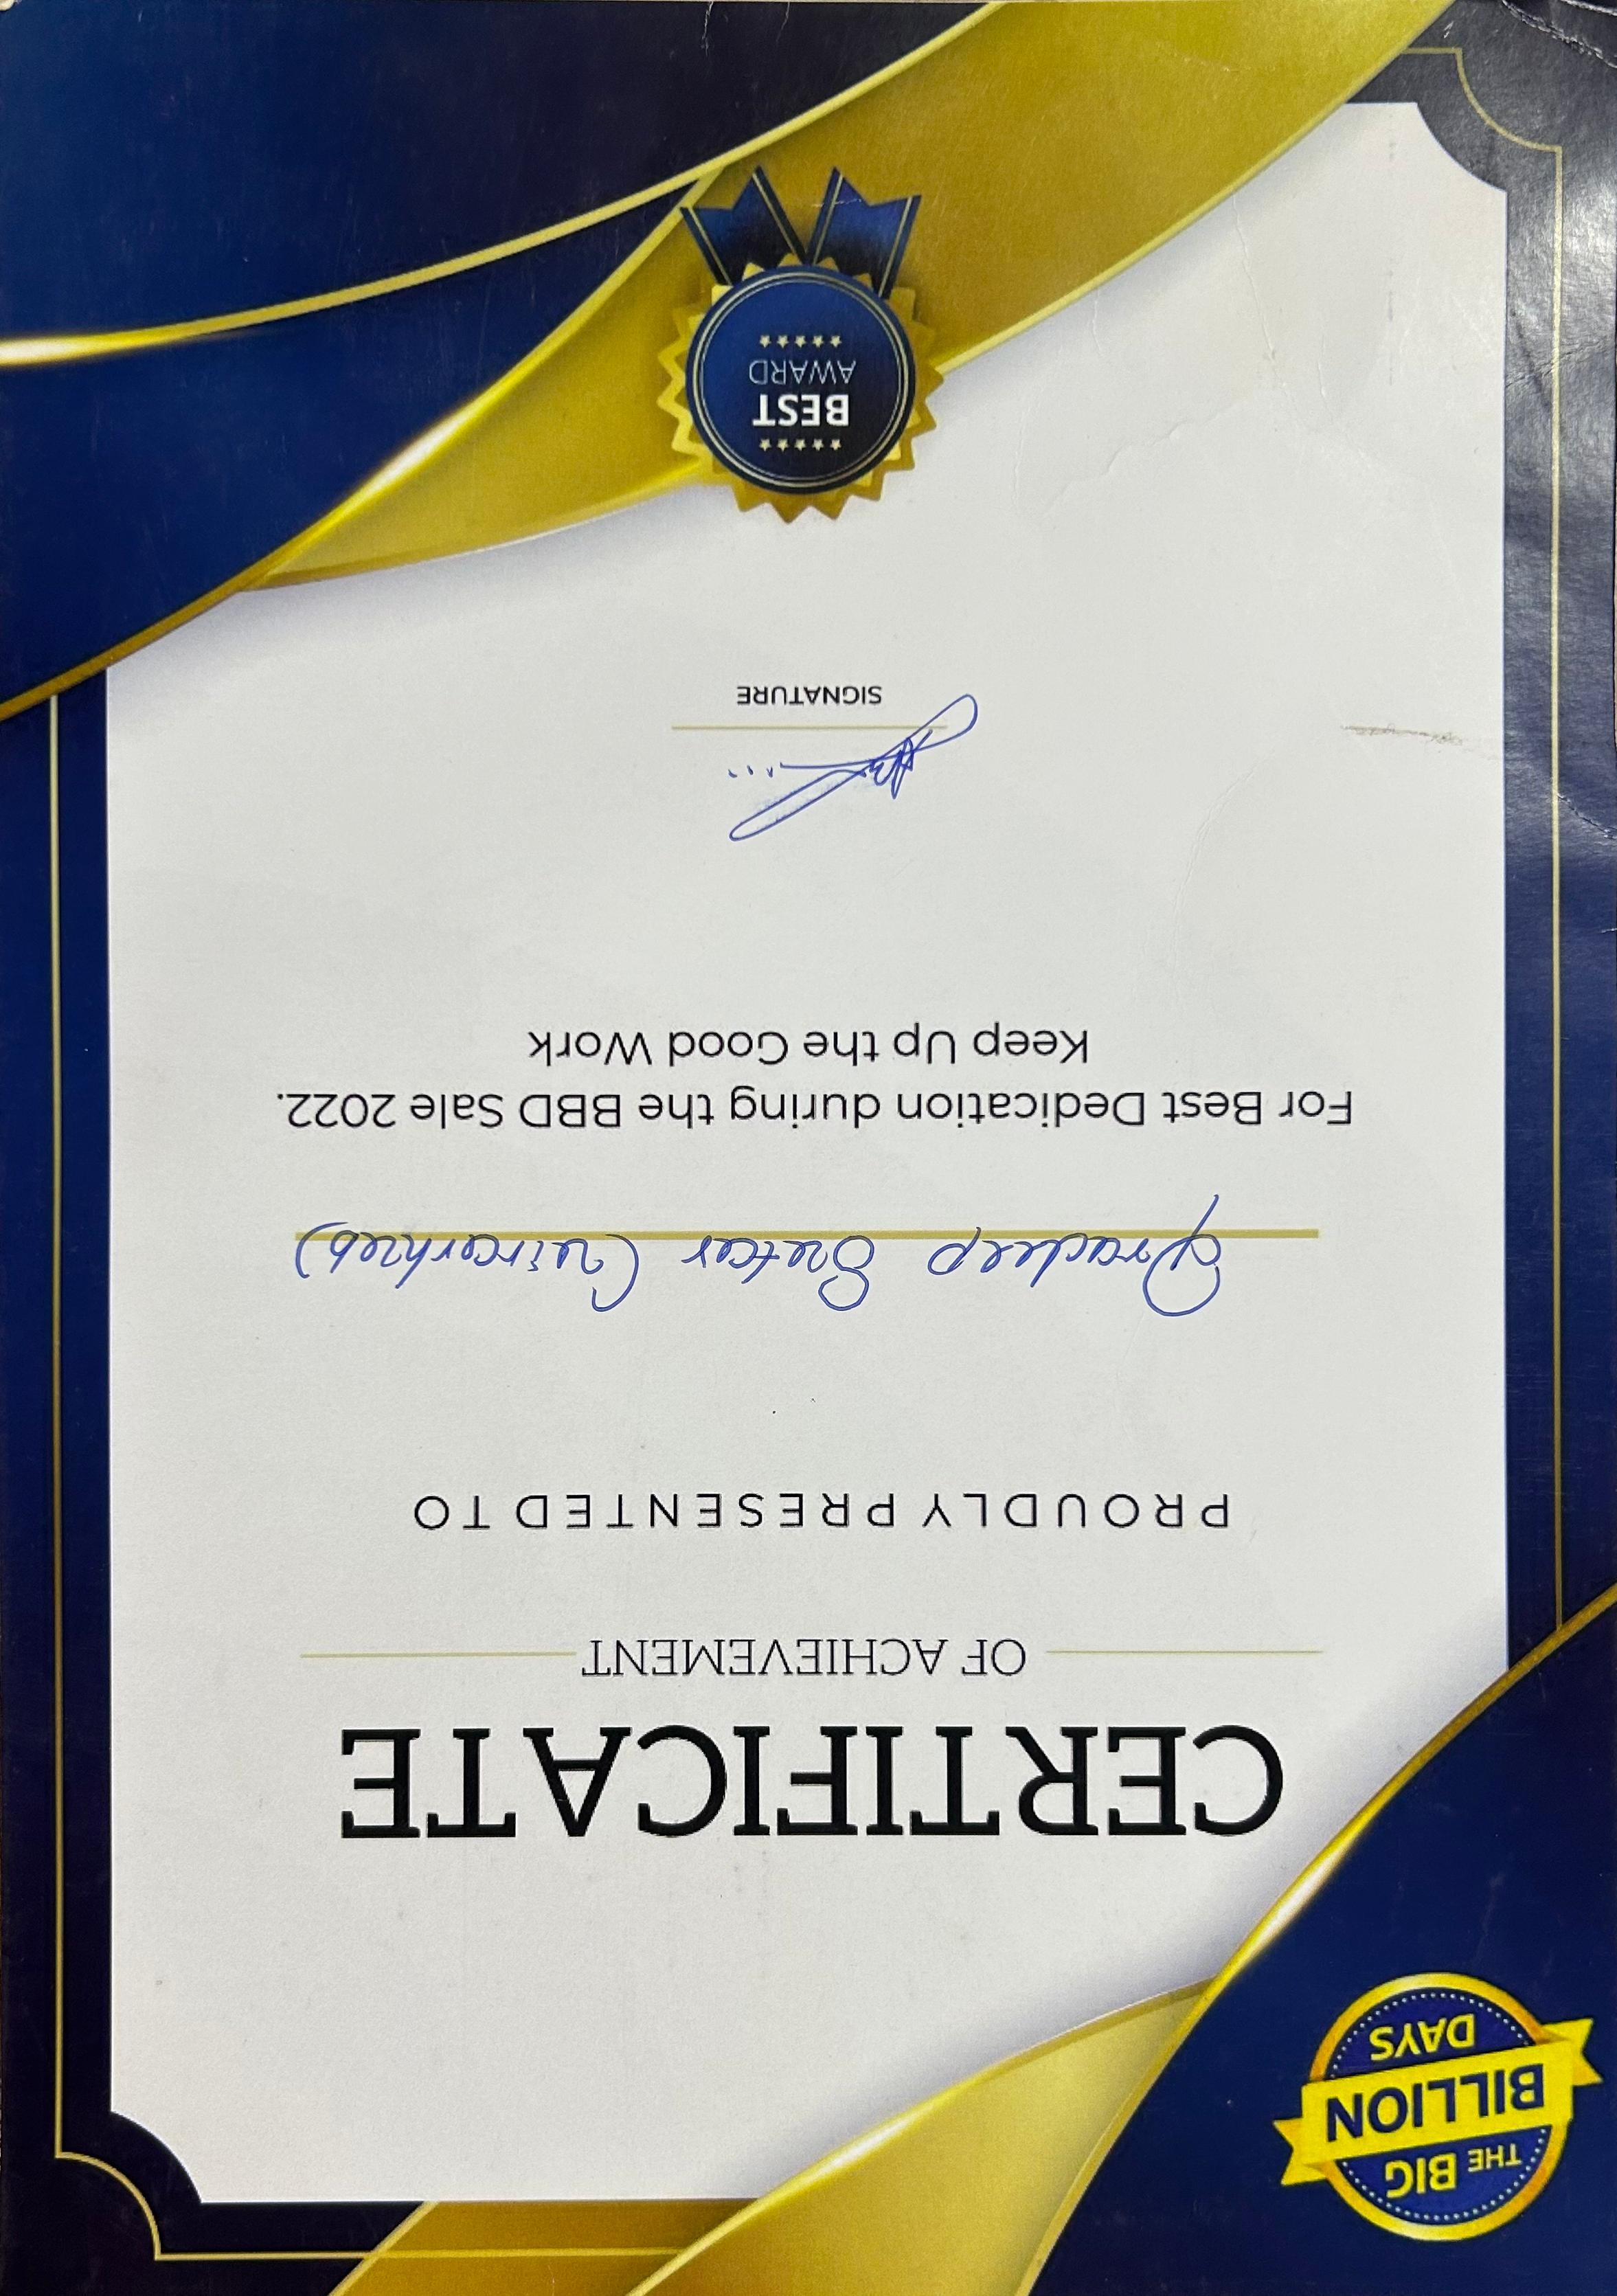 THE BIG
BILLION
DAYS
CERTIFICATE
OF ACHIEVEMENT
PROUDLY PRESENTED TO
Pradeep Sutar (virarhub)
For Best Dedication during the BBD Sale 2022.
Keep Up the Good Work
SIGNATURE
BEST
AWARD